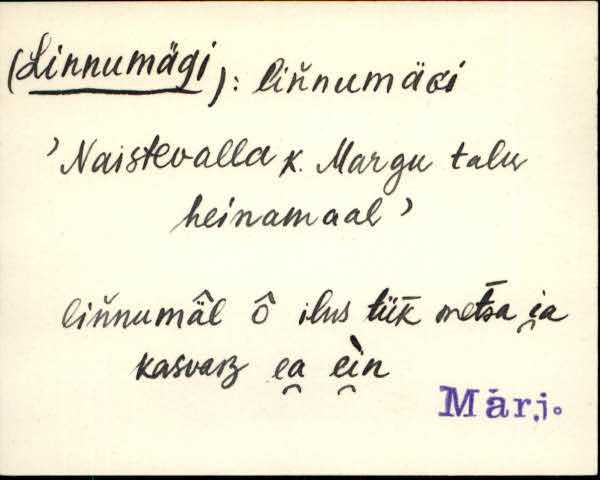 (Linnumägi): liňnumäGi
'Naistevalla k. Margu talu
heinamaal'
liňnumâ̈l ô ilus tük̄ met̄sa i̯a
kasvaʙ ea̯ ei̯n
Märj.